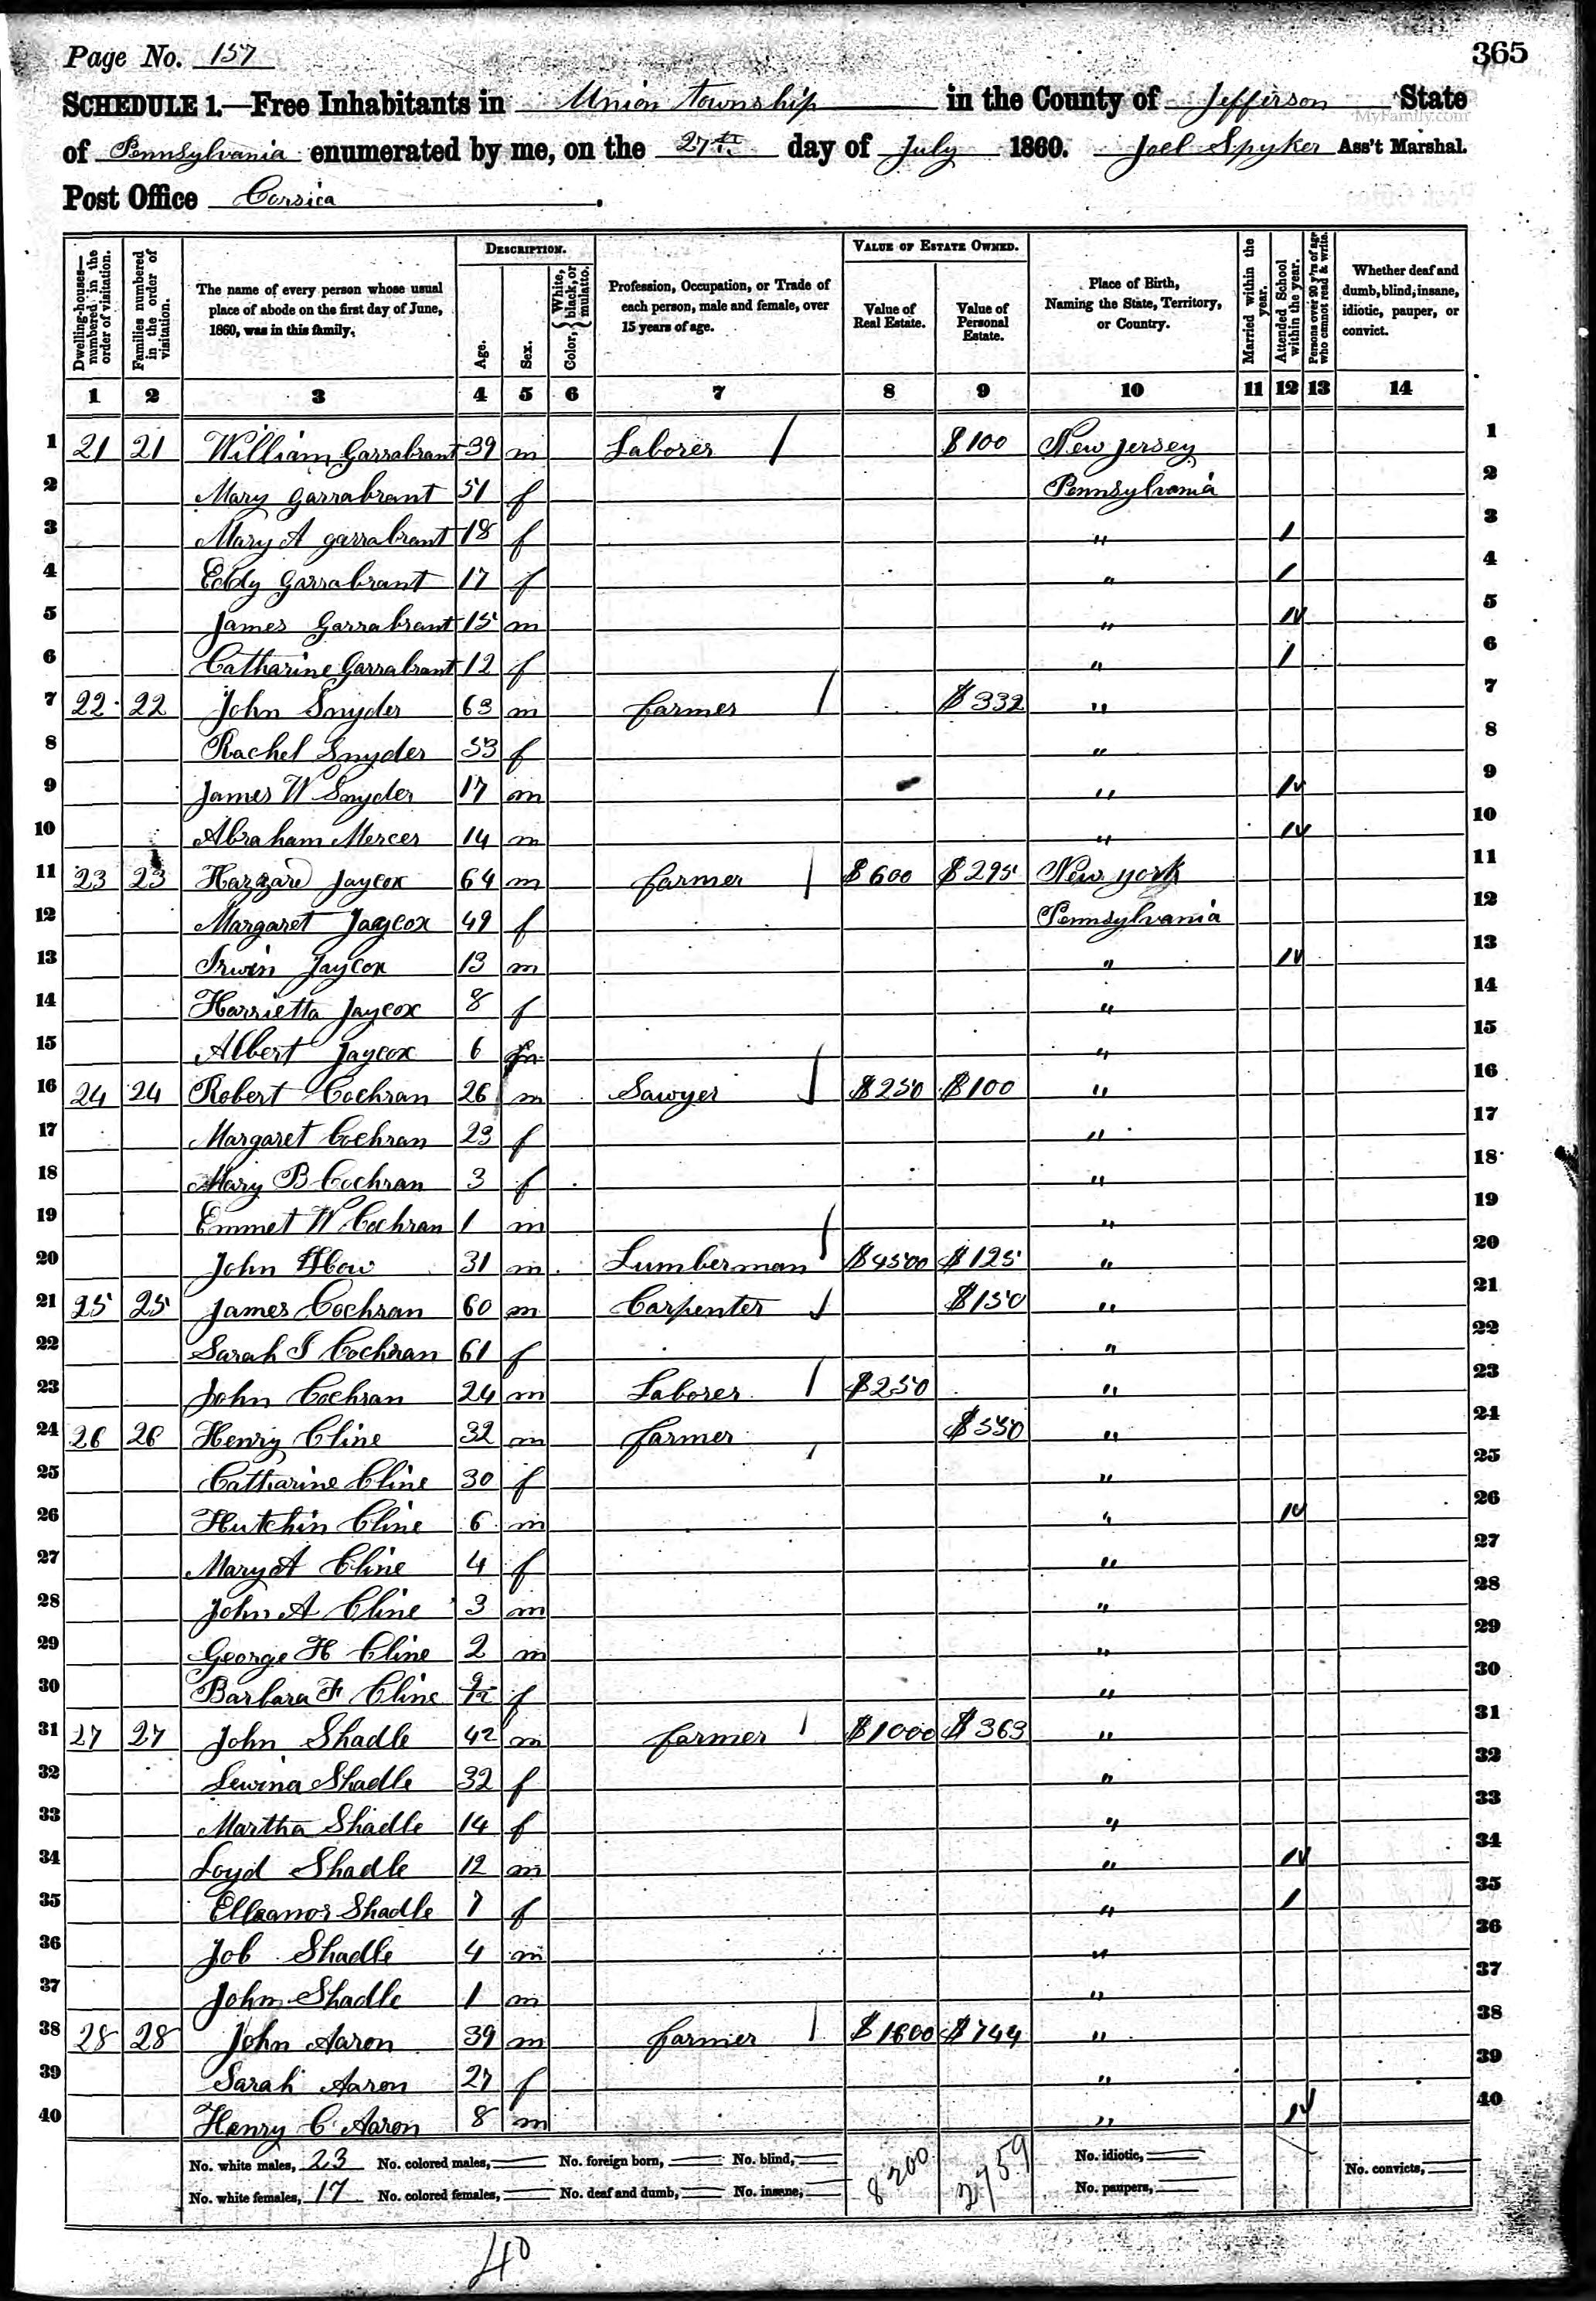 Page No. 157
365
SCHEDULE 1.—Free Inhabitants in Union Township in the County of Jefferson State
MyFamily.com
of Pennsylvania enumerated by me, on the 27th day of July 1860. Joel Spyker Ass't Marshal.
Post Office Corsica.
Dwelling-houses—numbered in the order of visitation.
Families numbered in the order of visitation.
The name of every person whose usual place of abode on the first day of June, 1860, was in this family.
DESCRIPTION.
Age.
Sex.
Color, White, black, or mulatto.
Profession, Occupation, or Trade of each person, male and female, over 15 years of age.
VALUE OF ESTATE OWNED.
Value of Real Estate.
Value of Personal Estate.
Place of Birth, Naming the State, Territory, or Country.
Married within the year.
Attended School within the year.
Persons over 20 y'rs of age who cannot read & write.
Whether deaf and dumb, blind, insane, idiotic, pauper, or convict.
1 2 3 4 5 6 7 8 9 10 11 12 13 14
1 21 21 William Garrabrant 39 m Laborer / $100 New Jersey 1
2 Mary Garrabrant 51 f Pennsylvania 2
3 Mary A Garrabrant 18 f " / 3
4 Eddy Garrabrant 17 f " / 4
5 James Garrabrant 15 m " 1v 5
6 Catharine Garrabrant 12 f " / 6
7 22 22 John Snyder 63 m farmer / $332 " 7
8 Rachel Snyder 53 f " 8
9 James W Snyder 17 m " 1v 9
10 Abraham Mercer 14 m " 1v 10
11 23 23 Hazzard Jaycox 64 m farmer / $600 $295 New York 11
12 Margaret Jaycox 49 f Pennsylvania 12
13 Irwin Jaycox 13 m " 1v 13
14 Harrietta Jaycox 8 f " 14
15 Albert Jaycox 6 m " 15
16 24 24 Robert Cochran 26 m Sawyer / $250 $100 " 16
17 Margaret Cochran 23 f " 17
18 Mary B Cochran 3 f " 18
19 Emmet W Cochran 1 m " 19
20 John 31 m Lumberman / $4500 $125 " 20
21 25 25 James Cochran 60 m Carpenter / $150 " 21
22 Sarah J Cochran 61 f " 22
23 John Cochran 24 m Laborer / $250 " 23
24 26 26 Henry Cline 32 m farmer / $550 " 24
25 Catharine Cline 30 f " 25
26 Hutchin Cline 6 m " 1v 26
27 Mary A Cline 4 f " 27
28 John A Cline 3 m " 28
29 George H Cline 2 m " 29
30 Barbara F Cline 9/12 f " 30
31 27 27 John Shadle 42 m farmer / $1000 $363 " 31
32 Lewina Shadle 32 f " 32
33 Martha Shadle 14 f " 33
34 Loyd Shadle 12 m " 1v 34
35 Elleanor Shadle 7 f " / 35
36 Job Shadle 4 m " 36
37 John Shadle 1 m " 37
38 28 28 John Aaron 39 m farmer / $1600 $744 " 38
39 Sarah Aaron 27 f " 39
40 Henry C Aaron 8 m " 1v 40
No. white males, 23 No. colored males, No. foreign born, No. blind, 8200 2759 No. idiotic, No. convicts,
No. white females, 17 No. colored females, No. deaf and dumb, No. insane, No. paupers,
40